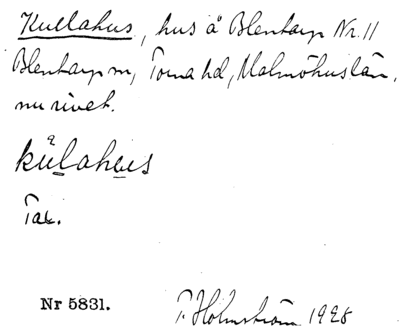 Kullahus, hus å Blentarp Nr. 11
Blentarp sn, Torna hd, Malmöhus län,
nu rivet.
kulahus
Tal.
Nr 5831.
T. Holmström 1928